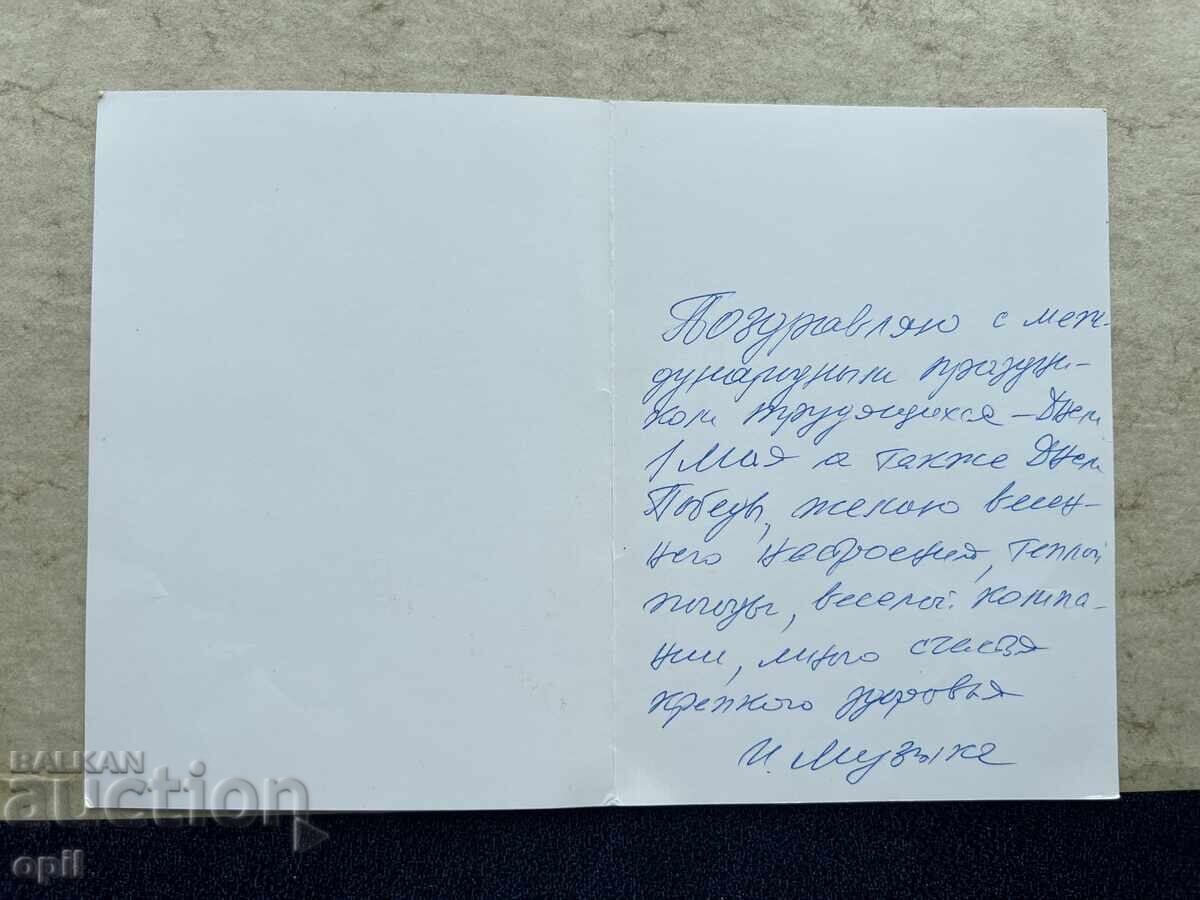 Поздравляю с меж-
дународным праздни-
ком трудящихся – Днем
1 Мая а также Днем
Победы, желаю весен-
него настроения, теплой
погоды, веселой компа-
нии, много счастья
крепкого здоровья
И. Музыка
BALKAN
auction
opil